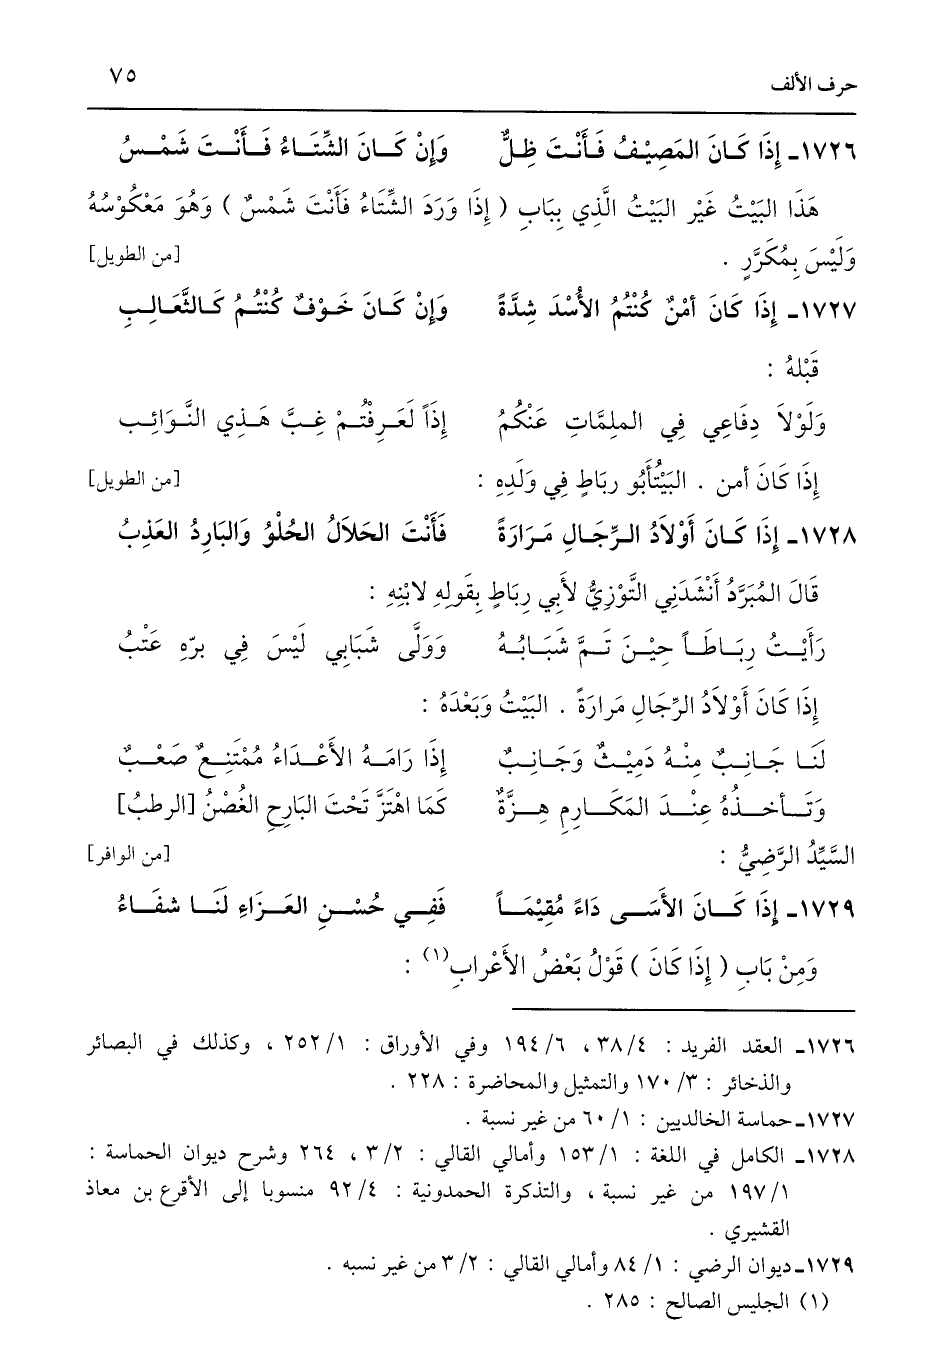 حرف الألف ٧٥
١٧٢٦ـ إِذَا كَـانَ المَصِيْـفُ فَـأَنْتَ ظِـلٌّ وَإِنْ كَـانَ الشِّتَـاءُ فَـأَنْـتَ شَمْـسُ
هَذَا البَيْتُ غَيْر البَيْتُ الَّذِي بِبَابِ ( إِذَا وَرَدَ الشِّتَاءُ فَأَنْتَ شَمْسٌ ) وَهُوَ مَعْكُوسُهُ
وَلَيْسَ بِمُكَرَّرٍ . [من الطويل]
١٧٢٧ـ إِذَا كَانَ أَمْنٌ كُنْتُمُ الأُسْدَ شِدَّةً وَإِنْ كَـانَ خَـوْفٌ كُنْتُـمُ كَـالثَّعَـالِـبِ
قَبْلهُ :
وَلَوْلاَ دِفَاعِي فِي الملِمَّاتِ عَنْكُمُ إِذَاً لَعَـرِفْتُـمْ غِـبَّ هَـذِي النَّـوَائِـبِ
إِذَا كَانَ أمن . البَيْتُأَبُو ربَاطٍ فِي وَلَدِهِ : [من الطويل]
١٧٢٨ـ إِذَا كَـانَ أَوْلاَدُ الـرِّجَـالِ مَـرَارَةً فَأَنْتَ الحَلاَلُ الحُلْوُ وَالبَارِدُ العَذِبُ
قَالَ المُبَرَّدُ أَنْشَدَنِي التَّوْزِيُّ لأَبِي رِبَاطٍ بِقَولِهِ لابْنِهِ :
رَأَيْـتُ رِبَـاطَـاً حِيْـنَ تَـمَّ شَبَـابُـهُ وَوَلَّى شَبَابِي لَيْسَ فِي برّهِ عَتْبُ
إِذَا كَانَ أَوْلاَدُ الرِّجَالِ مَرارَةً . البَيْتُ وَبَعْدَهُ :
لَنَـا جَـانِـبٌ مِنْـهُ دَمِيْـثٌ وَجَـانِـبٌ إِذَا رَامَـهُ الأَعْـدَاءُ مُمْتَنِـعٌ صَعْـبٌ
وَتَـأخـذُهُ عِنْـدَ المَكَـارِمِ هِـزَّةٌ كَمَا اهْتَزَّ تَحْتَ البَارِحِ الغُصْنُ [الرطبُ]
السَّيِّدُ الرَّضِيُّ : [من الوافر]
١٧٢٩ـ إِذَا كَـانَ الأَسَـى دَاءً مُقِيْمَـاً فَفِـي حُسْـنِ العَـزَاءِ لَنَـا شفَـاءُ
وَمِنْ بَابِ ( إِذَا كَانَ ) قَوْلُ بَعْضُ الأَعْرابِ(١) :
١٧٢٦ـ العقد الفريد : ٣٨/٤ ، ١٩٤/٦ وفي الأوراق : ٢٥٢/١ ، وكذلك في البصائر
والذخائر : ١٧٠/٣ والتمثيل والمحاضرة : ٢٢٨ .
١٧٢٧ـحماسة الخالديين : ٦٠/١ من غير نسبة .
١٧٢٨ـ الكامل في اللغة : ١٥٣/١ وأمالي القالي : ٣/٢ ، ٢٦٤ وشرح ديوان الحماسة :
١٩٧/١ من غير نسبة ، والتذكرة الحمدونية : ٩٢/٤ منسوبا إلى الأقرع بن معاذ
القشيري .
١٧٢٩ـديوان الرضي : ٨٤/١ وأمالي القالي : ٣/٢ من غير نسبه .
(١) الجليس الصالح : ٢٨٥ .